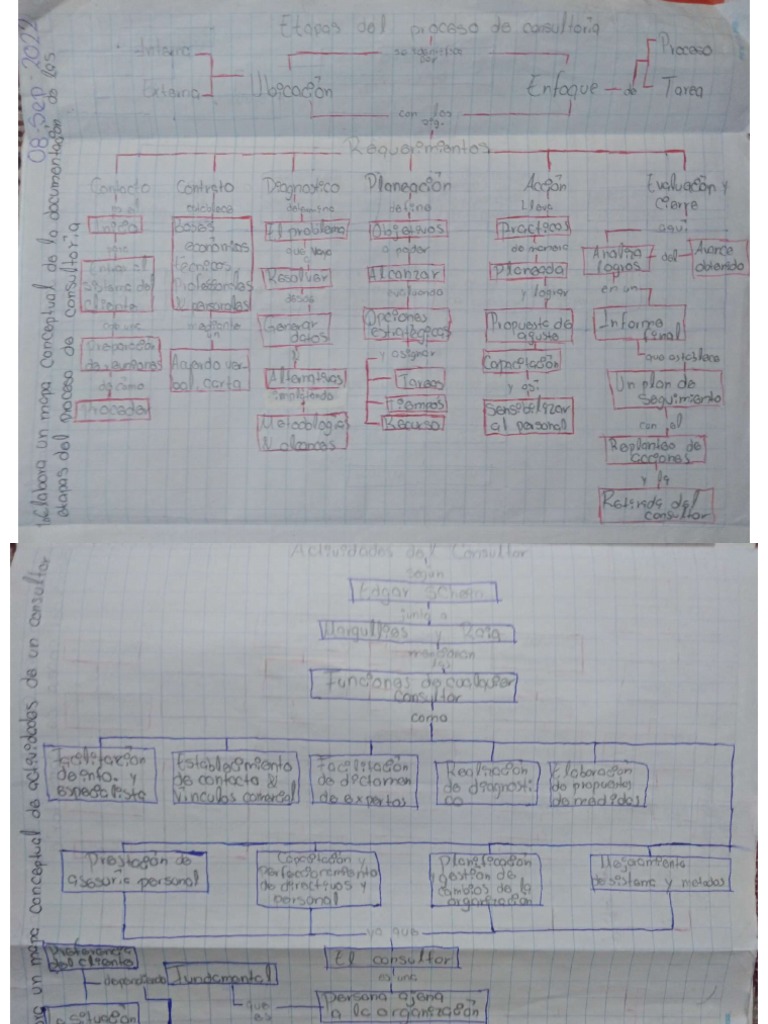 08-Sep-2022
Elabora un mapa conceptual de la documentación de las
etapas del proceso de consultoría
Etapas del proceso de consultoría
Interna
Externa
Ubicación
se identifica
por
Enfoque
de
Proceso
Tarea
con los
sig.
Requerimientos
Contacto
Inicia
Entrar al
sistema del
cliente
Preparación
de
Proceder
Contrato
establece
bases
económicas
técnicas
Profesionales
y personales
mediante
un
Acuerdo ver
bal, carta
Diagnostico
El problema
Resolver
desde
Generar
datos
Alternativas
Metodologías
y alcances
Planeación
define
Objetivos
a poder
Alcanzar
evaluando
Opciones
estratégicas
y asignar
Tareas
Tiempos
Recurso
Acción
Lleva
Practicas
de manera
Planeada
y lograr
Propuesta de
ajuste
Capacitación
y así
Sensibilizar
al personal
Evaluación y
cierre
aquí
Analiza
logros
del
Avance
obtenido
en un
Informe
final
que establece
Un plan de
seguimiento
con el
Replanteo de
acciones
y la
Retirada del
consultor
un mapa conceptual de actividades de un consultor
Actividades del Consultor
según
Edgar Schein
junto a
Margulies y Raia
mencionan
las
Funciones de cualquier
consultor
como
Facilitación
de info. y
especialista
Establecimiento
de contacto y
vinculos comercial
Facilitación
de dictamen
de expertos
Realización
de diagnosti
co
Elaboración
de propuestas
de medidas
Prestación de
asesoría personal
Capacitación y
perfeccionamiento
de directivos y
personal
Planificación
y gestión de
cambios de la
organización
Mejoramiento
de sistema y metodos
ya que
El consultor
es una
persona ajena
a la organización
que
es
fundamental
dependiendo
Preferencia
del cliente
situación